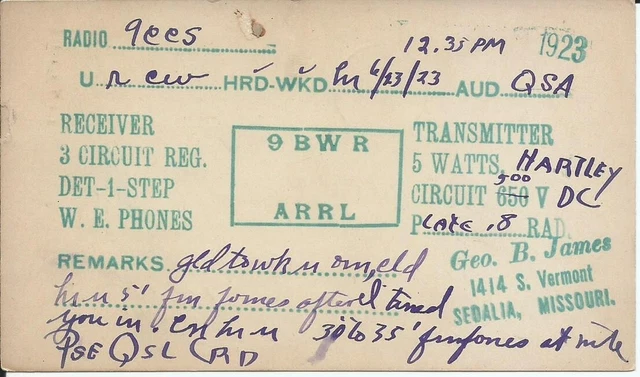 RADIO 9ees 12.35 PM 1923
U r cw HRD-WKD hr 6/23/23 AUD QSA
RECEIVER
3 CIRCUIT REG.
DET-1-STEP
W. E. PHONES
9 BWR
ARRL
TRANSMITTER
5 WATTS, HARTLEY
CIRCUIT 650 500 V DC
PLATE .8 RAD.
REMARKS gld to wk u om, cld
hr u 5' fm fones after I tuned
you in. Cn hr u 30 to 35' fm fones at nite
PSE QSL CRD
Geo. B. James
1414 S. Vermont
SEDALIA, MISSOURI.